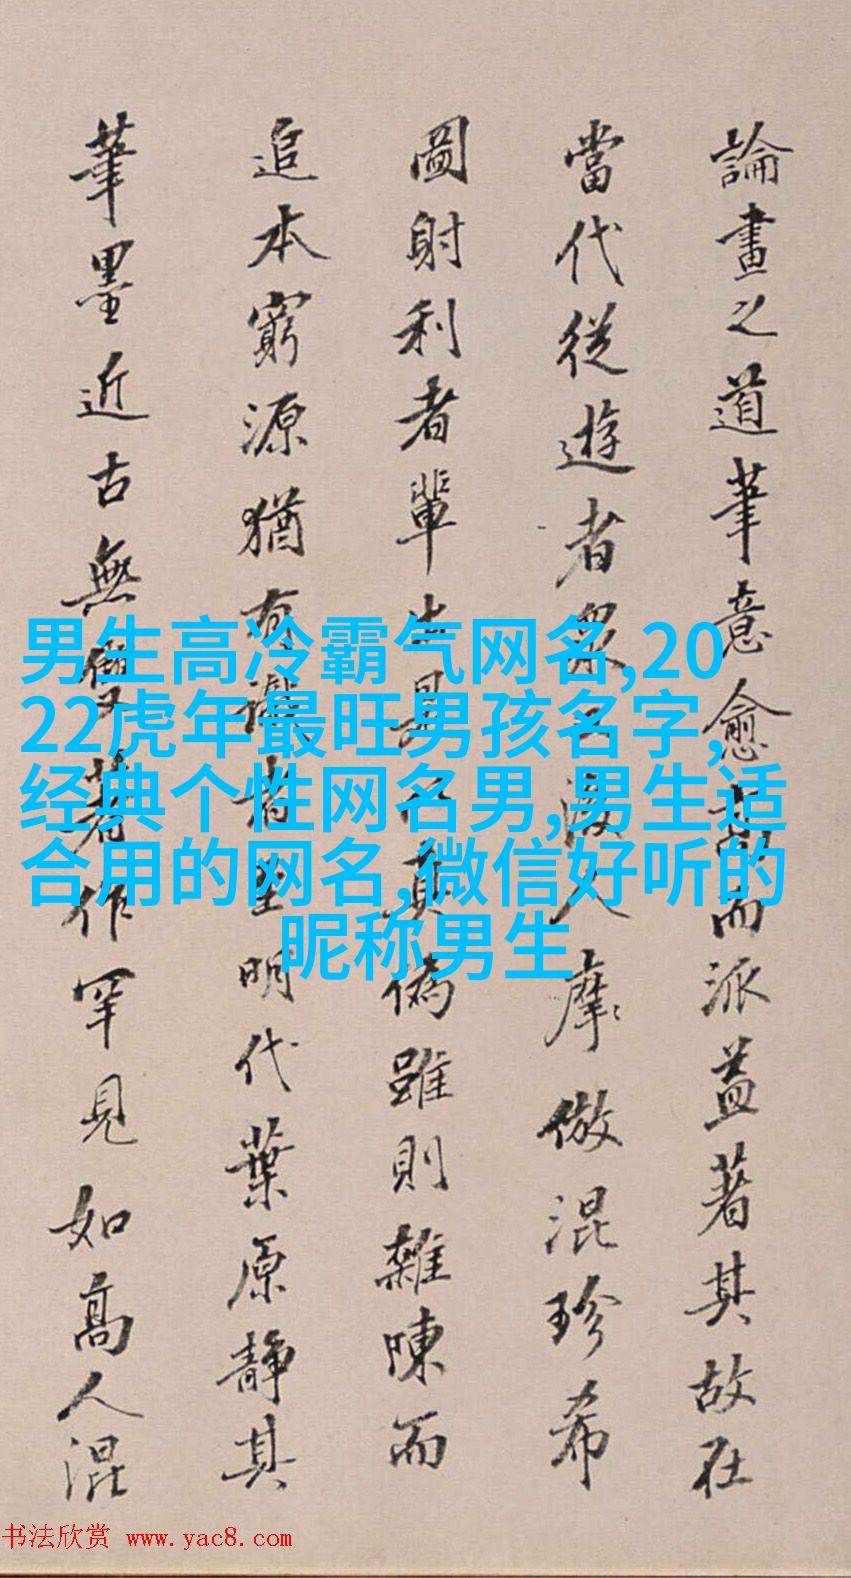 論畫之道筆意愈高而派益著其故在
當代從遊者眾後人摩倣混珍希
圖射利者輩出真偽雖則雜陳而
追本窮源猶有識者明代葉原靜其
筆墨近古無雙著作罕見如高人混
男生高冷霸气网名,20
22虎年最旺男孩名字,
经典个性网名男,男生适
合用的网名,微信好听的
昵称男生
书法欣赏 www.yac8.com